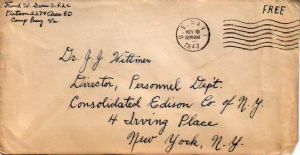 Frank W.
Platoon Area
Camp Peary Va
FREE
U.S. NAVY
NOV 19
1943
Dr. J.J. Wittmer
Director, Personnel Dept.
Consolidated Edison Co. of N.Y.
4 Irving Place
New York, N.Y.